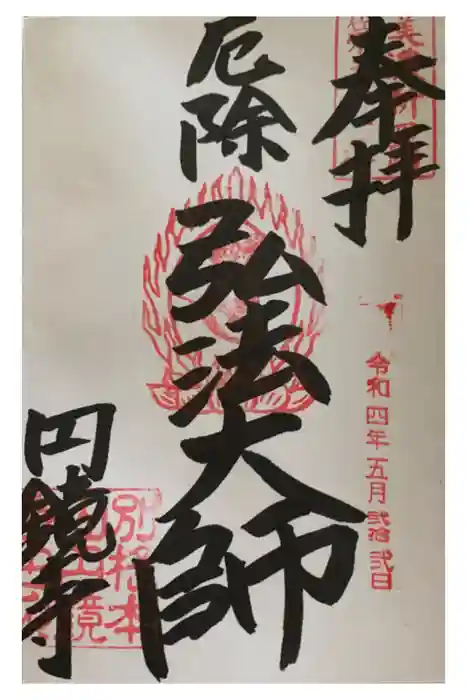 奉拝
令和四年五月弐拾弐日
厄除
弘法大師
円鏡寺
別格本